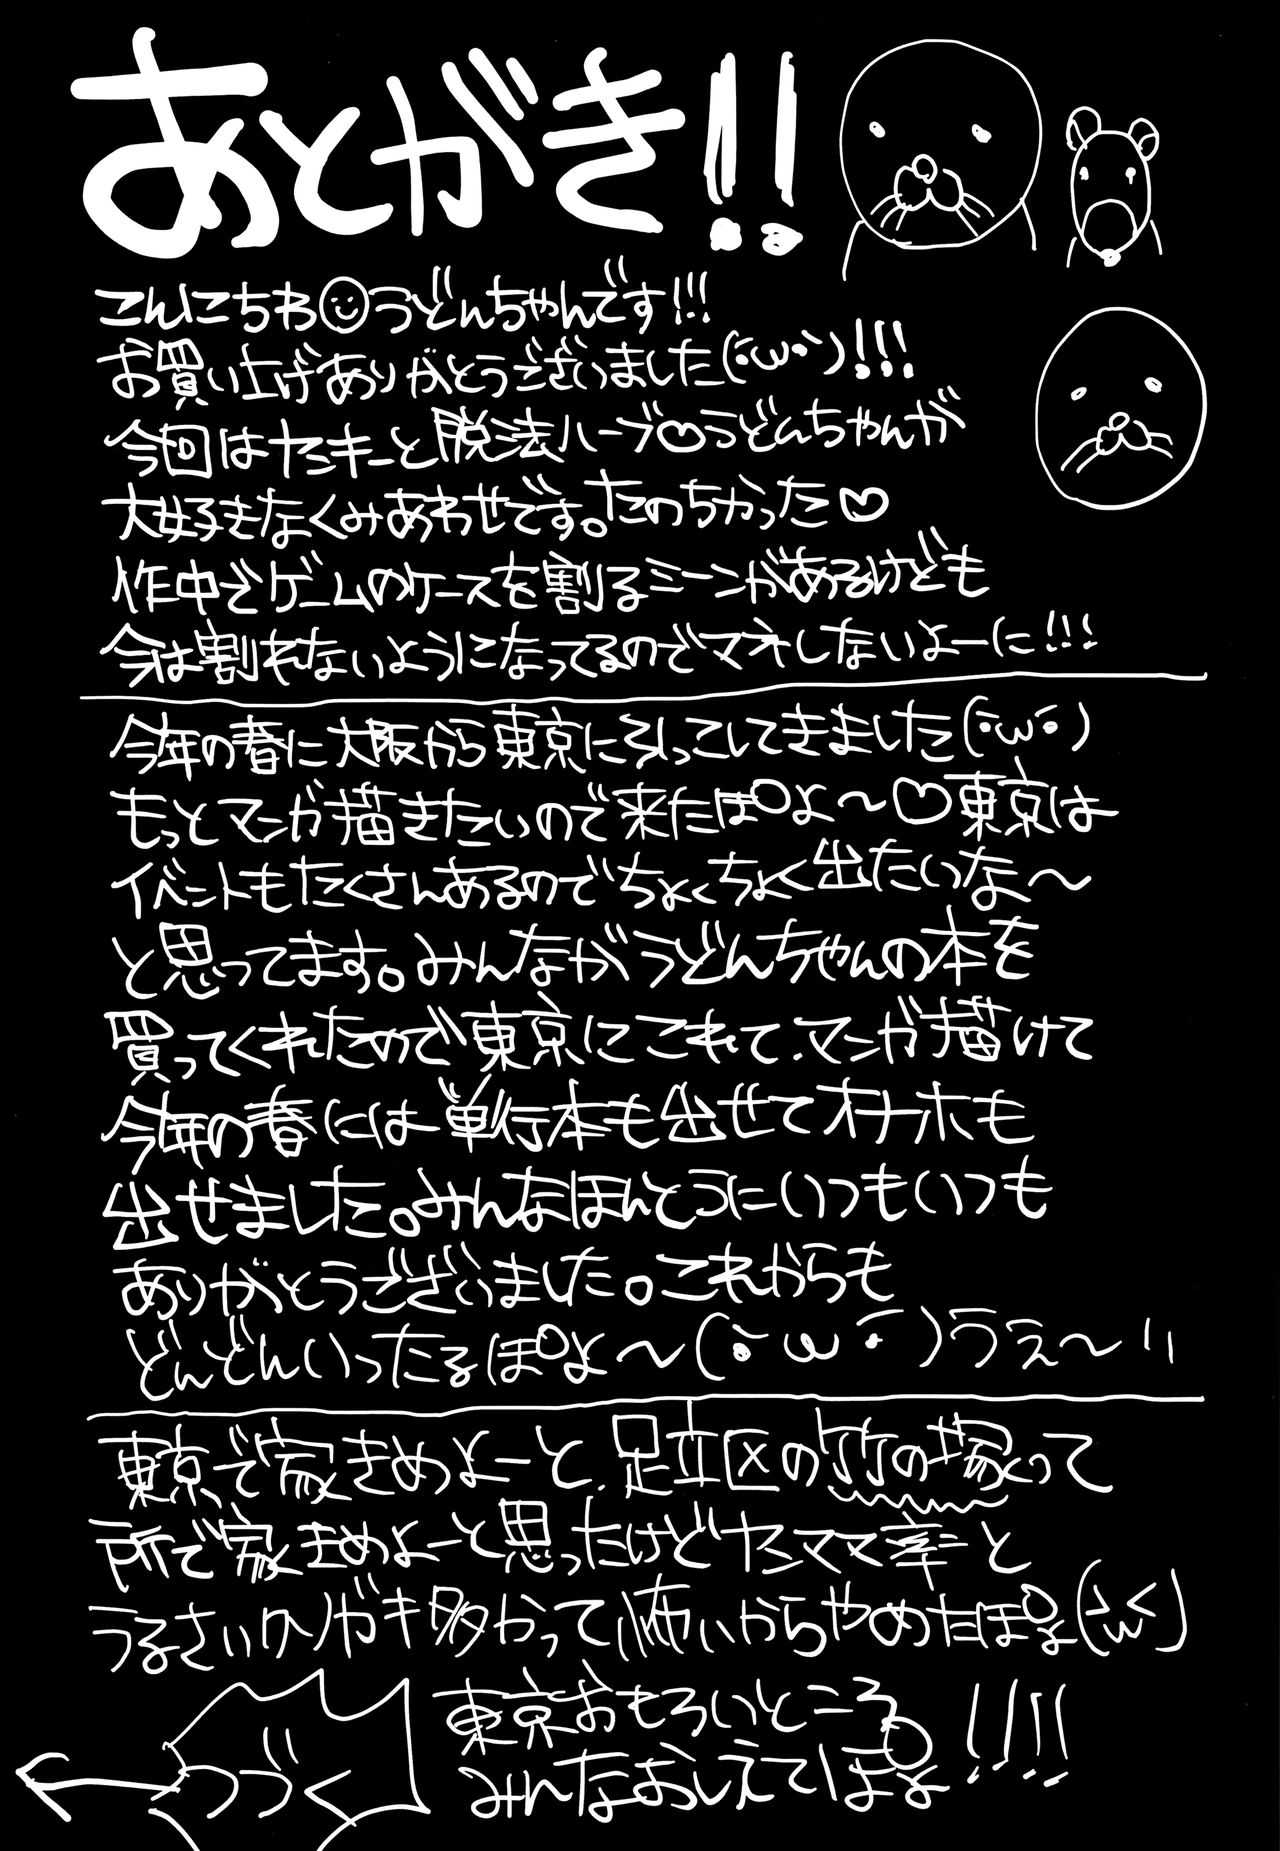 あとがき!!
こんにちわ☺うどんちゃんです!!!
お買い上げありがとうございました(・ω・)!!!
今回はヤンキーと脱法ハーブ♡うどんちゃんが
大好きなくみあわせです。たのちかった♡
作中でゲームのケースを割るシーンがあるけども
今は割れないようになってるのでマネしないよーに!!!
今年の春に大阪から東京に引っこしてきました(・ω・)
もっとマンガ描きたいので来たぽよ〜♡東京は
イベントもたくさんあるのでちょくちょく出たいな〜
と思ってます。みんながうどんちゃんの本を
買ってくれたので東京にこれて、マンガ描けて
今年の春には単行本も出せてオナホも
出せました。みんなほんとうにいつもいつも
ありがとうございました。これからも
どんどんいったるぽよ〜(・ω・)うぇ〜い
東京で家きめよーと、足立区の竹の塚って
所で家きめよーと思ったけどヤンママ率と
うるさいクソガキ多かって怖いからやめたぽよ(>ω<)
東京おもろいところ
みんなおしえてぽよ!!!!
つづく